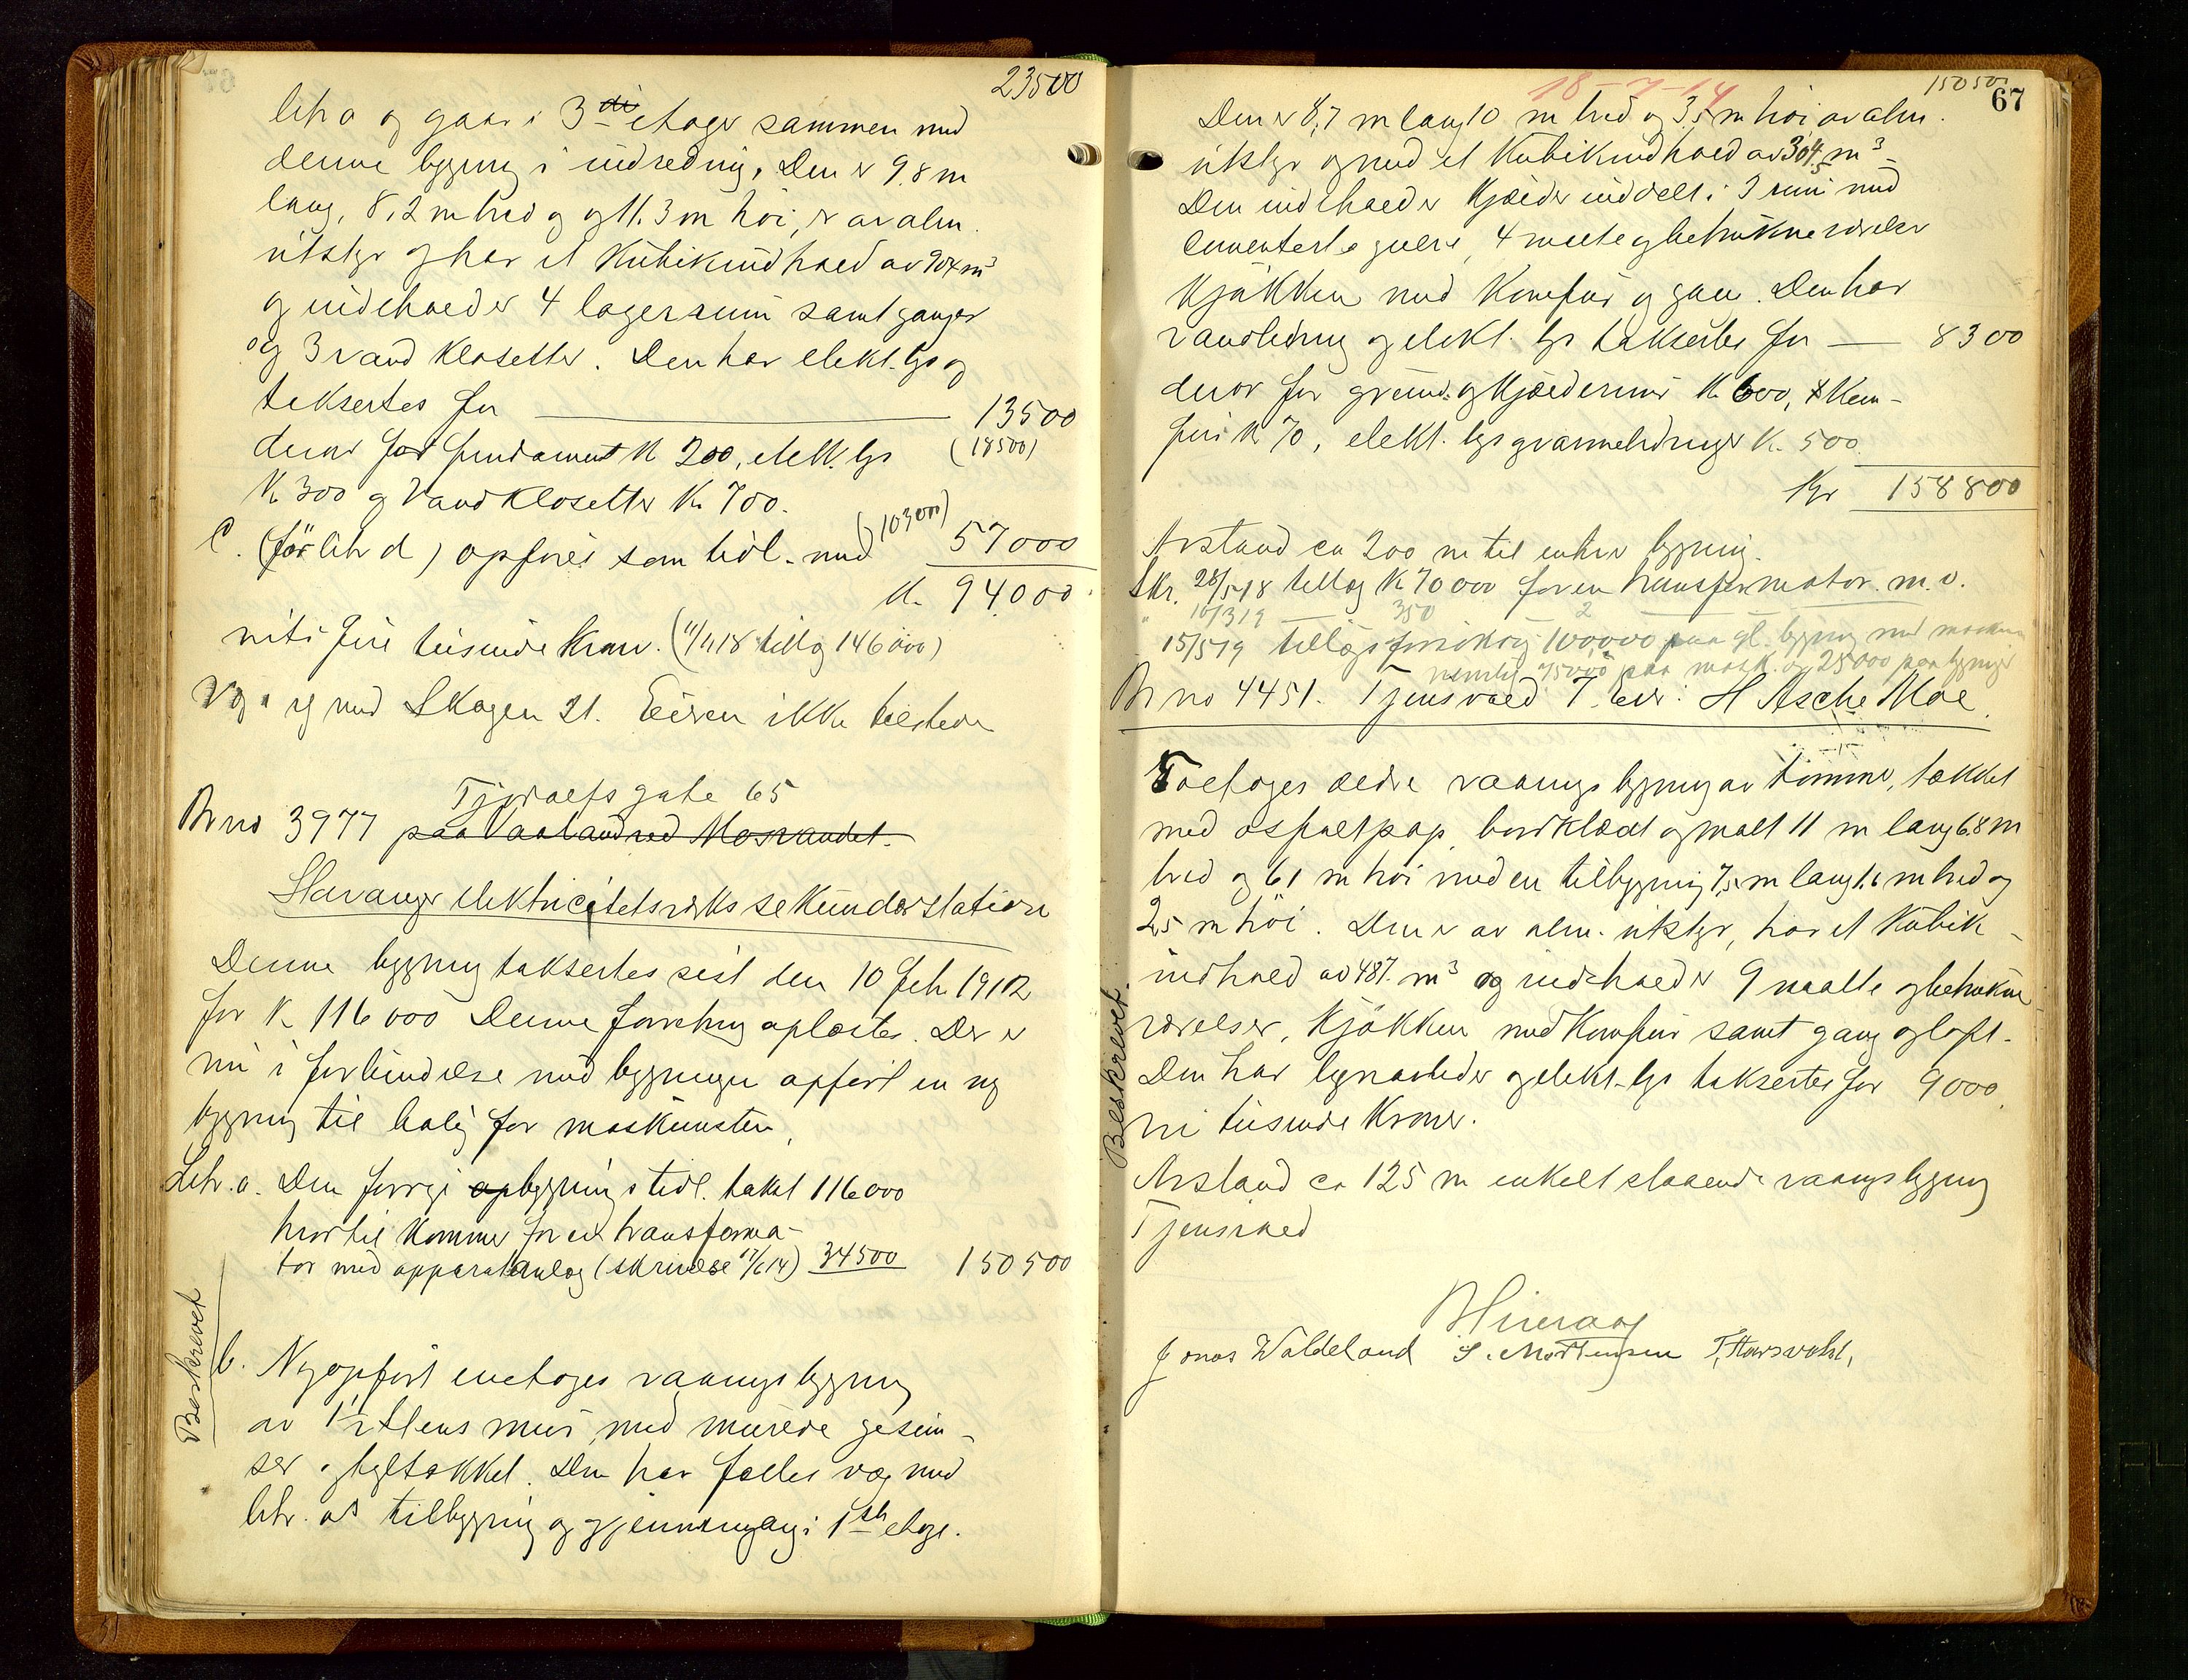 23500
litr a og gaar i 3die etage sammen med
denne bygning i indredning. Den er 9.8 m
lang, 8,2 m bred og 11.3 m høi, er av alm.
utstyr og har et Kubikindhold av 904 m³
og indeholder 4 lagerrum samt ganger
og 3 vand klosetter. Den har elekt. lys og
taksertes for — 13500
derav for fundament K 200, elekt. lys (18500)
K 300 og Vandklosetter K. 700.
C. (før litr d) opføres som tidl. med (103000) 57000
K. 94000
nitifire tusinde Kroner. (11/1 18 tillæg 146000)
Væg i eg med Skagen 21. Eieren ikke tilstede
Tjodolfs gate 65
Br no 3977 paa Vaaland ved Mosvandet.
Stavanger elektricitetsverks sekundærstation
Denne bygning taksertes sist den 10 Feb. 1912
for K 116000 Denne forretning oplæstes. Der er
nu i forbindelse med bygningen opført en ny
bygning til bolig for maskinisten,
Litr. a. Den forrige bygning tidl. takst 116000
hvortil kommer for en transforma-
tor med apparatanlæg (skrivelse 17/6 14) 34500 150500
Beskrevet
b. Nyopført enetages vaaningsbygning
av 1½ Stens mur, med murede gesim-
ser og tegltækket. Den har fælles væg med
litr. as tilbygning og gjennemgang i 1ste etage.
18-7-14
150500
67
Den er 8,7 m lang 10 m bred og 3,5 m høi av alm.
utstyr og med et Kubikindhold av 304,5 m³
Den indeholder Kjælder inddelt i 3 rum med
cementerte gulve, 4 malte og betrukne værelser
Kjøkken med Komfur og gang. Den har
vandledning og elekt. lys taksertes for — 8300
derav for grund- og Kjældermur K. 600, Kom-
fur K 70, elekt. lys og varmeledninger K. 500
Kr 158800
Avstand ca 200 m til anden bygning.
Skr. 28/5 18 tillæg K 70000 for en transformator m. v.
" 10/3 19 — 350 — 2
15/5 19 tillægsforsikring 100,000 paa gl. bygning med maskin
nemlig 75000 paa mask. og 25000 paa bygning
Br no 4451. Tjensvold T. eier: H Asche Moe.
Toetages ældre vaaningsbygning av tømmer, tækket
med asfaltpap, bordklædt og malt 11 m lang 6.8 m
bred og 6,1 m høi med en tilbygning 7,5 m lang 1,6 m bred og
2,5 m høi. Den er av alm. utstyr, har et Kubik-
indhold av 487. m³ og indeholder 9 malte og betrukne
værelser, Kjøkken med Komfur samt gang og loft.
Den har og elekt. lys taksertes for 9000
ni tusinde Kroner.
Beskrevet.
Avstand ca 125 m enkelt staaende vaaningsbygning
Tjensvold
Jonas Waldeland S. Mortensen